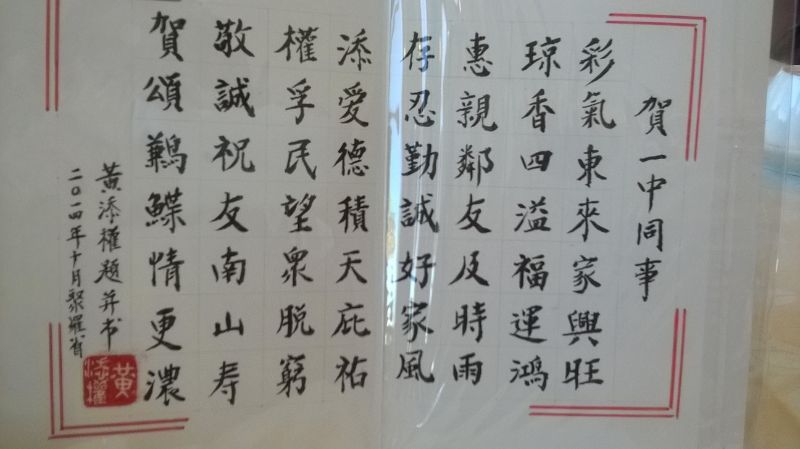 賀一中同事
彩氣東來家興旺
琼香四溢福運鴻
惠親鄰友及時雨
存忍勤誠好家風
添愛德積天庇祐
權孚民望衆脱窮
敬誠祝友南山寿
賀頌鶼鰈情更濃
黄添權題并书
二〇一四年十月聚羅省
黄添權